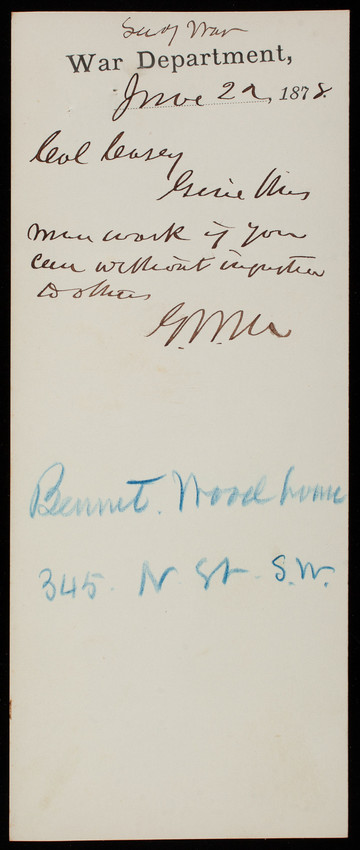 Secy War
War Department,
June 22, 1878.
Col Casey
Give this
man work if you
can without injustice
to others
G.W. Mc
Bennet. Woodhouse
345. N St. S.W.